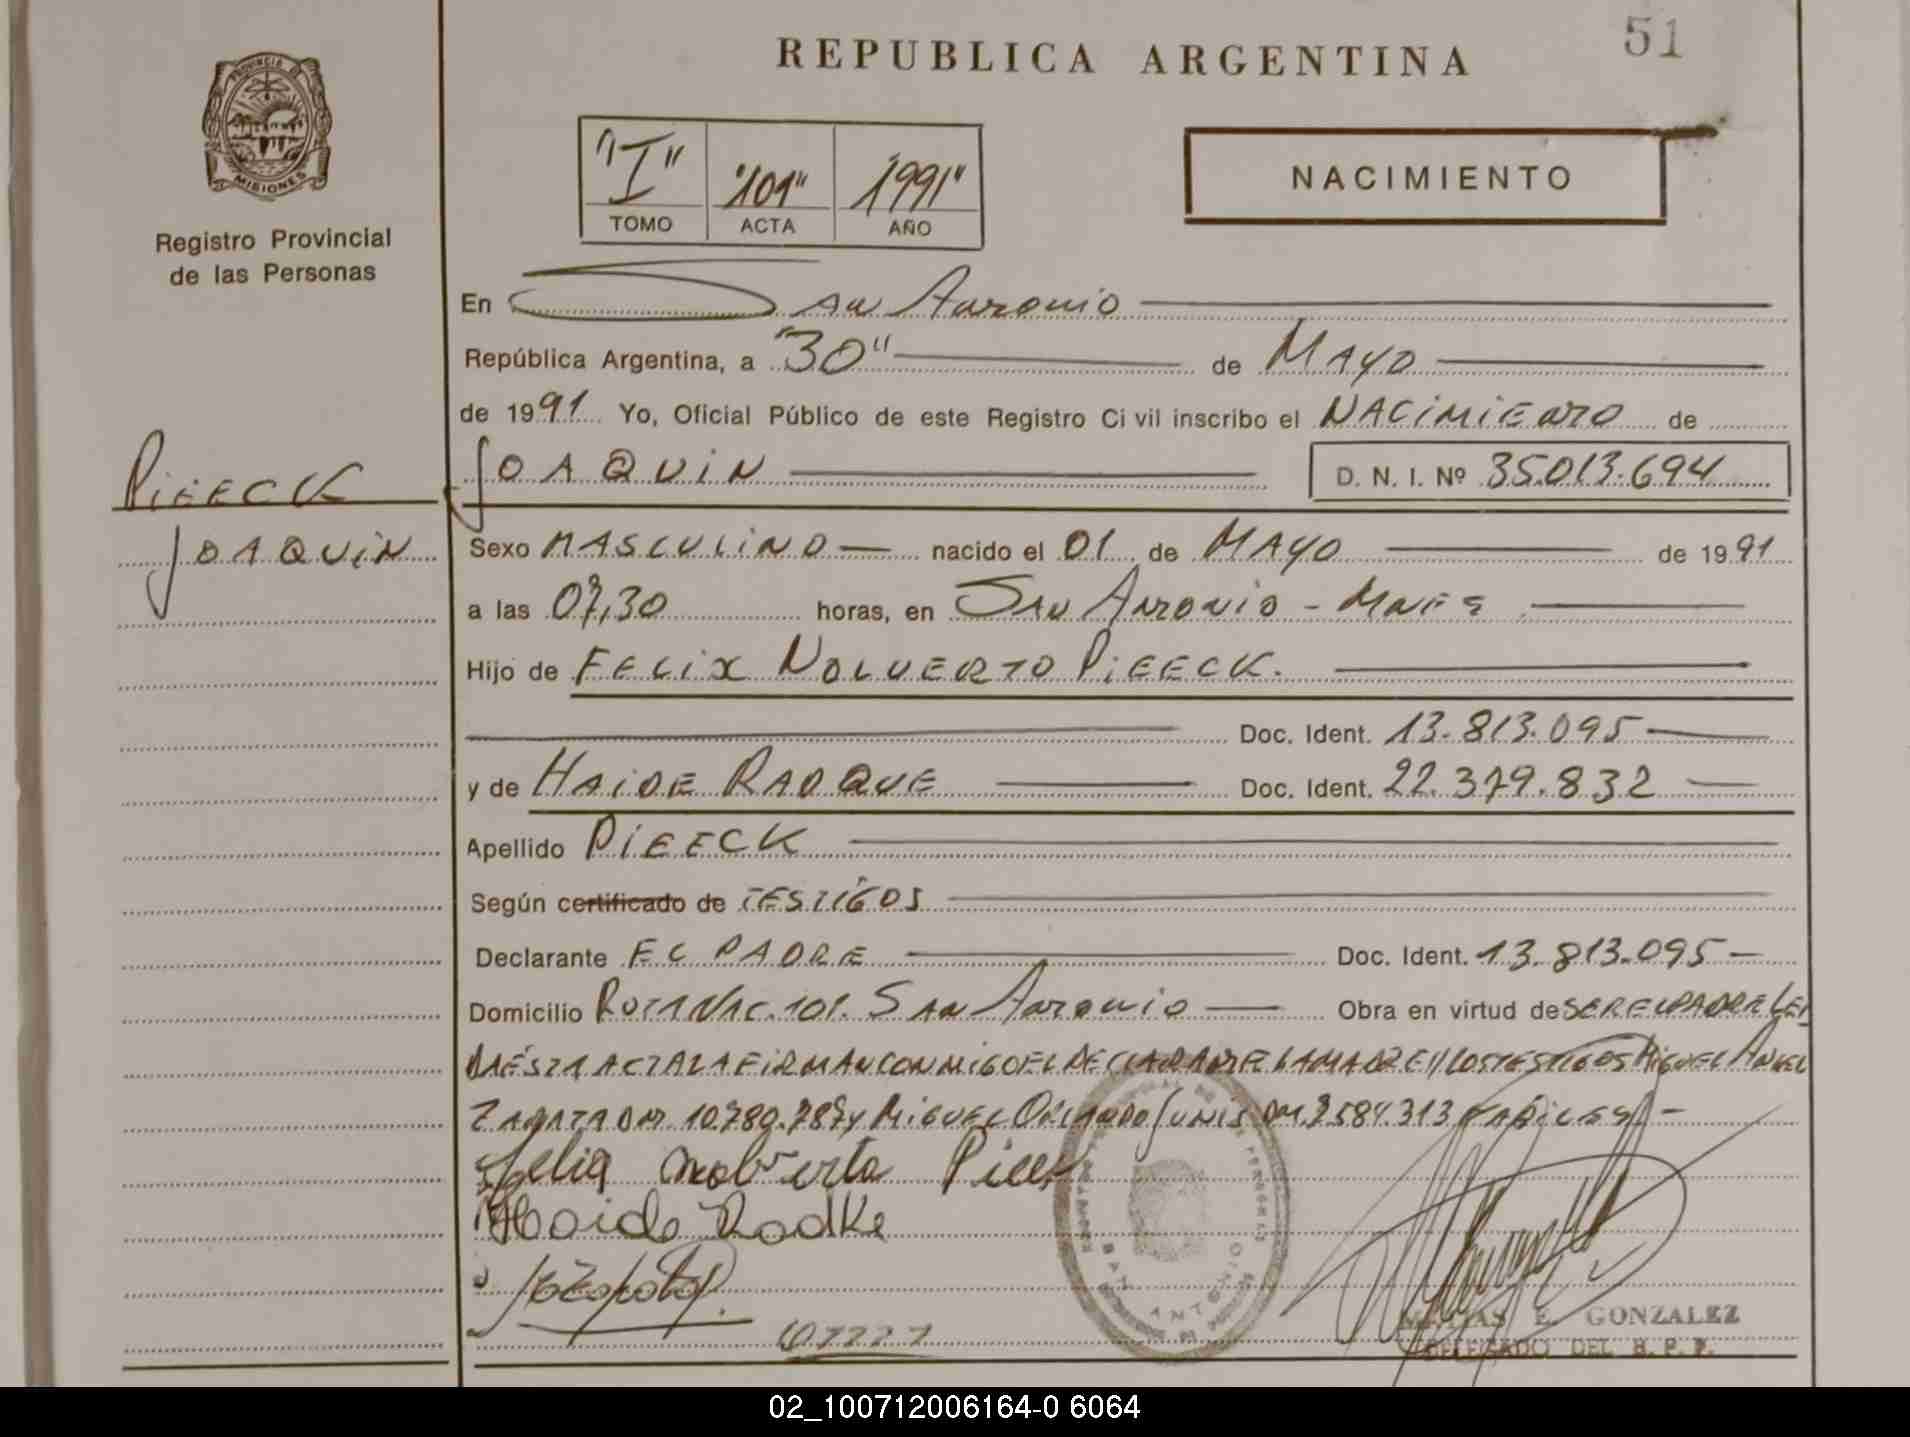 51
REPUBLICA ARGENTINA
PROVINCIA DE
MISIONES
Registro Provincial
de las Personas
"I" "101" 1991"
TOMO ACTA AÑO
NACIMIENTO
En San Antonio
República Argentina, a "30" de MAYO
de 1991 Yo, Oficial Público de este Registro Civil inscribo el NACIMIENTO de
PIEECK
JOAQUIN
JOAQUIN D. N. I. Nº 35.013.694
Sexo MASCULINO nacido el 01 de MAYO de 1991
a las 07,30 horas, en SAN ANTONIO - MNES
Hijo de FELIX NOLVERTO PIEECK.
Doc. Ident. 13.813.095
y de HAIDE RADQUE Doc. Ident. 22.379.832
Apellido PIEECK
Según certificado de TESTIGOS
Declarante EL PADRE Doc. Ident. 13.813.095
Domicilio RUTA NAC. 101. SAN ANTONIO Obra en virtud de SER EL PADRE LEI
DA ÉSTA ACTA LA FIRMAN CONMIGO EL DECLARANTE LA MADRE Y LOS TESTIGOS MIGUEL ANGEL
ZAPATA DM. 10.780.787 y MIGUEL ORLANDO DM. 584.313
Haide Radke
SAN ANTONIO
MATIAS E. GONZALEZ
DELEGADO DEL R. P. P.
02_100712006164-0 6064